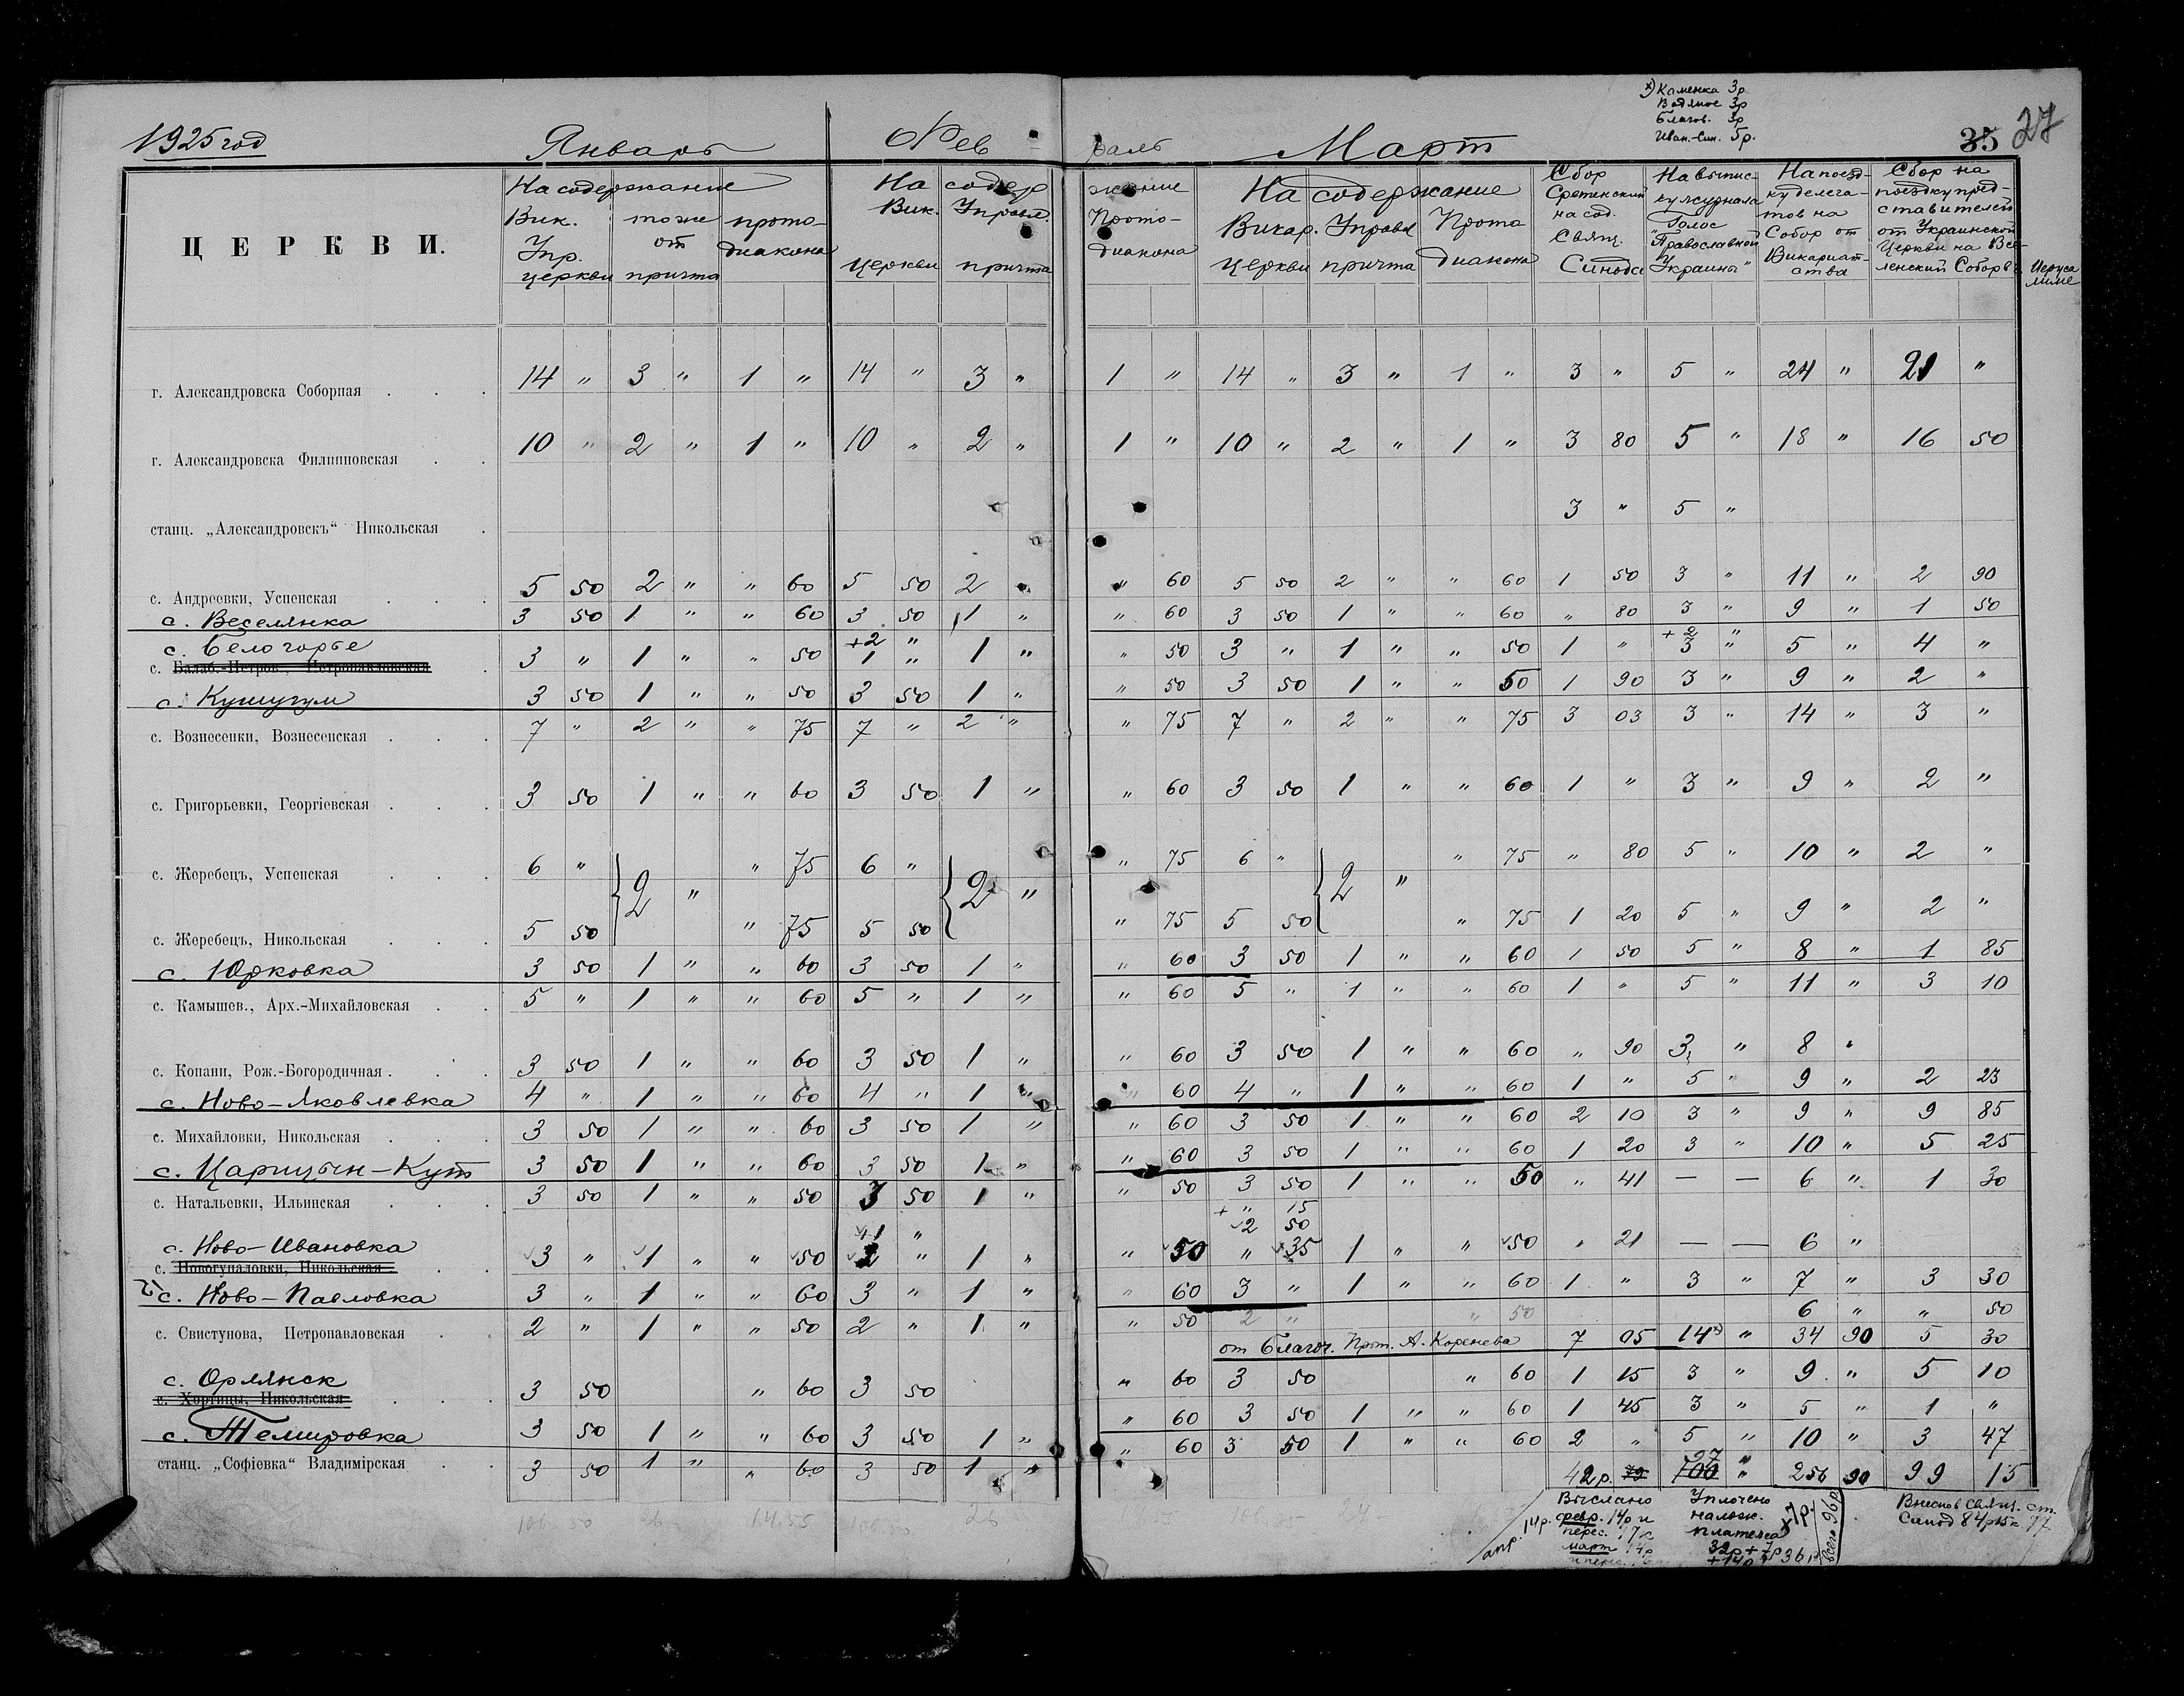 х) Каменка 3р.
Водяное 3р
Благов. 3р
Иван.-Син. 5р.
1925 год Январь Фев раль Март 35 27
ЦЕРКВИ.
На содержание Вик. Упр. церкви | тоже от причта | прото-диакона | На содер Вик. церкви | Управл. причта | жание Прото-диакона | На содержание Викар. церкви | Управл причта | Прото диакона | Сбор Сретенский на сод. Свящ. Синода | На выпис-ку журнала "Голос Православной Украины" | На поезд-ку делега-тов на Собор от Викариат-ства | Сбор на поездку пред-ставителей от Украинской Церкви на Все-ленский Собор в Иеруса лиме
г. Александровска Соборная . . . 14 " 3 " 1 " 14 " 3 " 1 " 14 " 3 " 1 " 3 " 5 " 24 " 21 "
г. Александровска Филипповская . . 10 " 2 " 1 " 10 " 2 " 1 " 10 " 2 " 1 " 3 80 5 " 18 " 16 50
станц. „Александровскъ“ Никольская . 3 " 5 "
с. Андреевки, Успенская . . . 5 50 2 " " 60 5 50 2 " " 60 5 50 2 " " 60 1 50 3 " 11 " 2 90
с. Веселянка 3 50 1 " " 60 3 50 1 " " 60 3 50 1 " " 60 " 80 3 " 9 " 1 50
с. Белогорье +2 " +2 "
с. Балаб.-Петров., Петропавловская . 3 " 1 " " 50 1 " 1 " " 50 3 " 1 " " 50 1 " 3 " 5 " 4 "
с. Кушугум 3 50 1 " " 50 3 50 1 " " 50 3 50 1 " " 50 1 90 3 " 9 " 2 "
с. Вознесенки, Вознесенская . . . 7 " 2 " " 75 7 " 2 " " 75 7 " 2 " " 75 3 03 3 " 14 " 3 "
с. Григорьевки, Георгіевская . . . 3 50 1 " " 60 3 50 1 " " 60 3 50 1 " " 60 1 " 3 " 9 " 2 "
с. Жеребецъ, Успенская . . . 6 " } 2 " " 75 6 " { 2 " " 75 6 " } 2 " " 75 " 80 5 " 10 " 2 "
с. Жеребецъ, Никольская . . . 5 50 " 75 5 50 " 75 5 50 " 75 1 20 5 " 9 " 2 "
с. Юрковка 3 50 1 " " 60 3 50 1 " " 60 3 50 1 " " 60 1 50 5 " 8 " 1 85
с. Камышев., Арх.-Михайловская . . 5 " 1 " " 60 5 " 1 " " 60 5 " 1 " " 60 1 " 5 " 11 " 3 10
с. Копани, Рож.-Богородичная . . . 3 50 1 " " 60 3 50 1 " " 60 3 50 1 " " 60 " 90 3 " 8 "
с. Ново-Яковлевка 4 " 1 " " 60 4 " 1 " " 60 4 " 1 " " 60 1 " 5 " 9 " 2 23
с. Михайловки, Никольская . . . 3 50 1 " " 60 3 50 1 " " 60 3 50 1 " " 60 2 10 3 " 9 " 9 85
с. Царицын-Кут 3 50 1 " " 60 3 50 1 " " 60 3 50 1 " " 60 1 20 3 " 10 " 5 25
с. Натальевки, Ильинская . . . 3 50 1 " " 50 3 50 1 " " 50 3 50 1 " " 50 " 41 — — 6 " 1 30
+ " 15
с. Ново-Ивановка +1 " 2 50
с. Новогупаловки, Никольская . . 3 " 1 " " 50 2 " 1 " " 50 " 35 1 " " 50 " 21 — — 6 "
с. Ново-Павловка 3 " 1 " " 60 3 " 1 " " 60 3 " 1 " " 60 1 " 3 " 7 " 3 30
с. Свистунова, Петропавловская . . 2 " 1 " " 50 2 " 1 " " 50 2 " " 50 6 " " 50
от Благоч. Прот. А. Коренева 7 05 14х) " 34 90 5 30
с. Орлянск
с. Хортицы, Никольская . . . 3 50 " 60 3 50 " 60 3 50 " 60 1 15 3 " 9 " 5 10
с. Темировка 3 50 1 " " 60 3 50 1 " " 60 3 50 1 " " 60 1 45 3 " 5 " 1 "
станц. „Софіевка“ Владимірская . . 3 50 1 " " 60 3 50 1 " " 60 3 50 1 " " 60 2 " 5 " 10 " 3 47
97 "
42р. 79 100 " 256 90 99 15
106 50 26 14.55 26
апр. 14р.
Выслано
февр. 14р и
перес. 17к
март 14р
Уплочено
налож.
платежа
32р + 7р
+ 14р
36
всего 96р.
Внесено свящ. ст.
Синод 84р15к